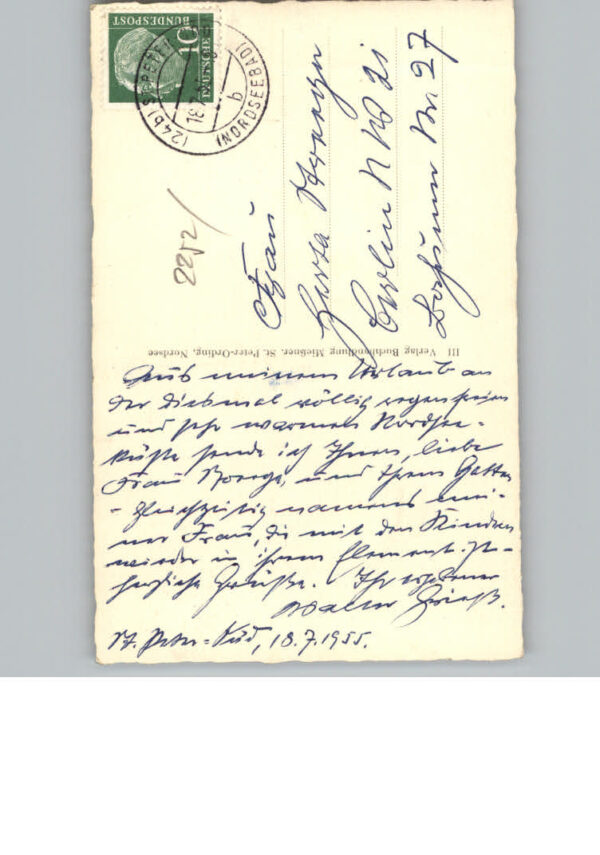 10
DEUTSCHE
BUNDESPOST
(24b) ST. PETER
18.7.
b
(NORDSEEBAD)
Frau
Herta
Berlin NW 21
Bochumer Nr. 27
III Verlag Buchhandlung Mießner. St. Peter-Ording, Nordsee
Aus meinem Urlaub an
der diesmal völlig regenfreien
und sehr warmen Nordsee-
küste sende ich Ihnen, liebe
Frau und Ihrem Gatten
- gleichzeitig namens mei-
ner Frau, die mit den Kindern
wieder in ihrem Element ist -
herzliche Grüße. Ihr ergebener
Walter
St. Peter-Süd, 18.7.1955.